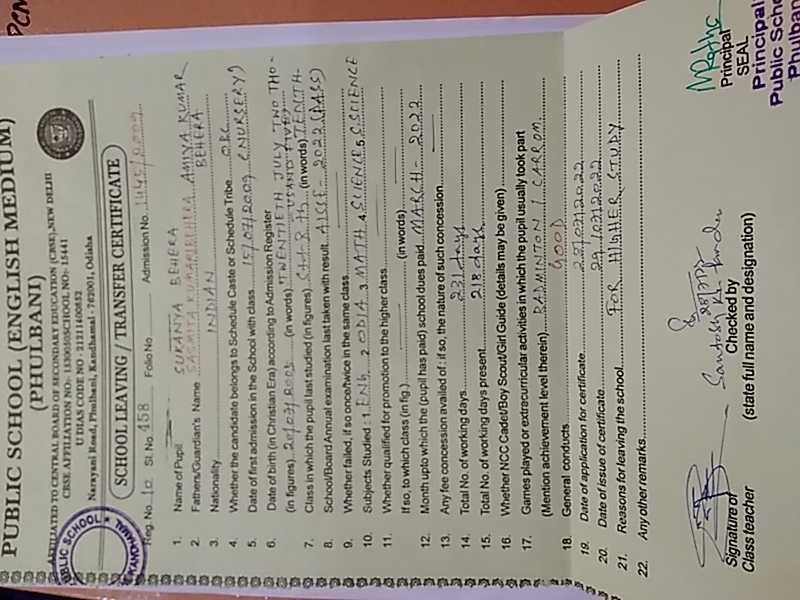 PUBLIC SCHOOL (ENGLISH MEDIUM)
(PHULBANI)
AFFILIATED TO CENTRAL BOARD OF SECONDARY EDUCATION (CBSE), NEW DELHI
CBSE AFFILIATION NO:- 1530050 SCHOOL NO:- 15441
U DIAS CODE NO - 21211400852
Narayani Road, Phulbani, Kandhamal - 762001, Odisha
SCHOOL LEAVING / TRANSFER CERTIFICATE
Reg. No. 10 Sl. No. 458 Folio No. Admission No. 1445/0009
1. Name of Pupil SUKANYA BEHERA
2. Fathers/Guardian's Name SASMITA KUMARI BEHERA, AMIYA KUMAR BEHERA
3. Nationality INDIAN
4. Whether the candidate belongs to Schedule Caste or Schedule Tribe OBC
5. Date of first admission in the School with class 15/07/2009 (NURSERY)
6. Date of birth (in Christian Era) according to Admission Register
(in figures) 20/07/2005 (in words) TWENTIETH JULY TWO THO-
USAND FIVE
7. Class in which the pupil last studied (in figures) (in words) TENTH
8. School/Board Annual examination last taken with result. AISSE - 2022 (PASS)
9. Whether failed, if so once/twice in the same class
10. Subjects Studied : 1. ENG 2. ODIA 3. MATH 4. SCIENCE 5. S.SCIENCE
11. Whether qualified for promotion to the higher class
If so, to which class (in fig.) (in words)
12. Month upto which the (pupil has paid) school dues paid. MARCH - 2022
13. Any fee concession availed of; if so, the nature of such concession
14. Total No. of working days 231 days
15. Total No. of working days present 218 days
16. Whether NCC Cadet/Boy Scout/Girl Guide (details may be given)
17. Games played or extracurricular activities in which the pupil usually took part
(Mention achievement level therein) BADMINTON / CARROM
18. General conducts. GOOD
19. Date of application for certificate 27/07/2022
20. Date of issue of certificate 29/07/2022
21. Reasons for leaving the school. FOR HIGHER STUDY
22. Any other remarks.
Signature of
Class teacher
Checked by
(state full name and designation)
Principal
SEAL
Principal
Public Scho
Phulban